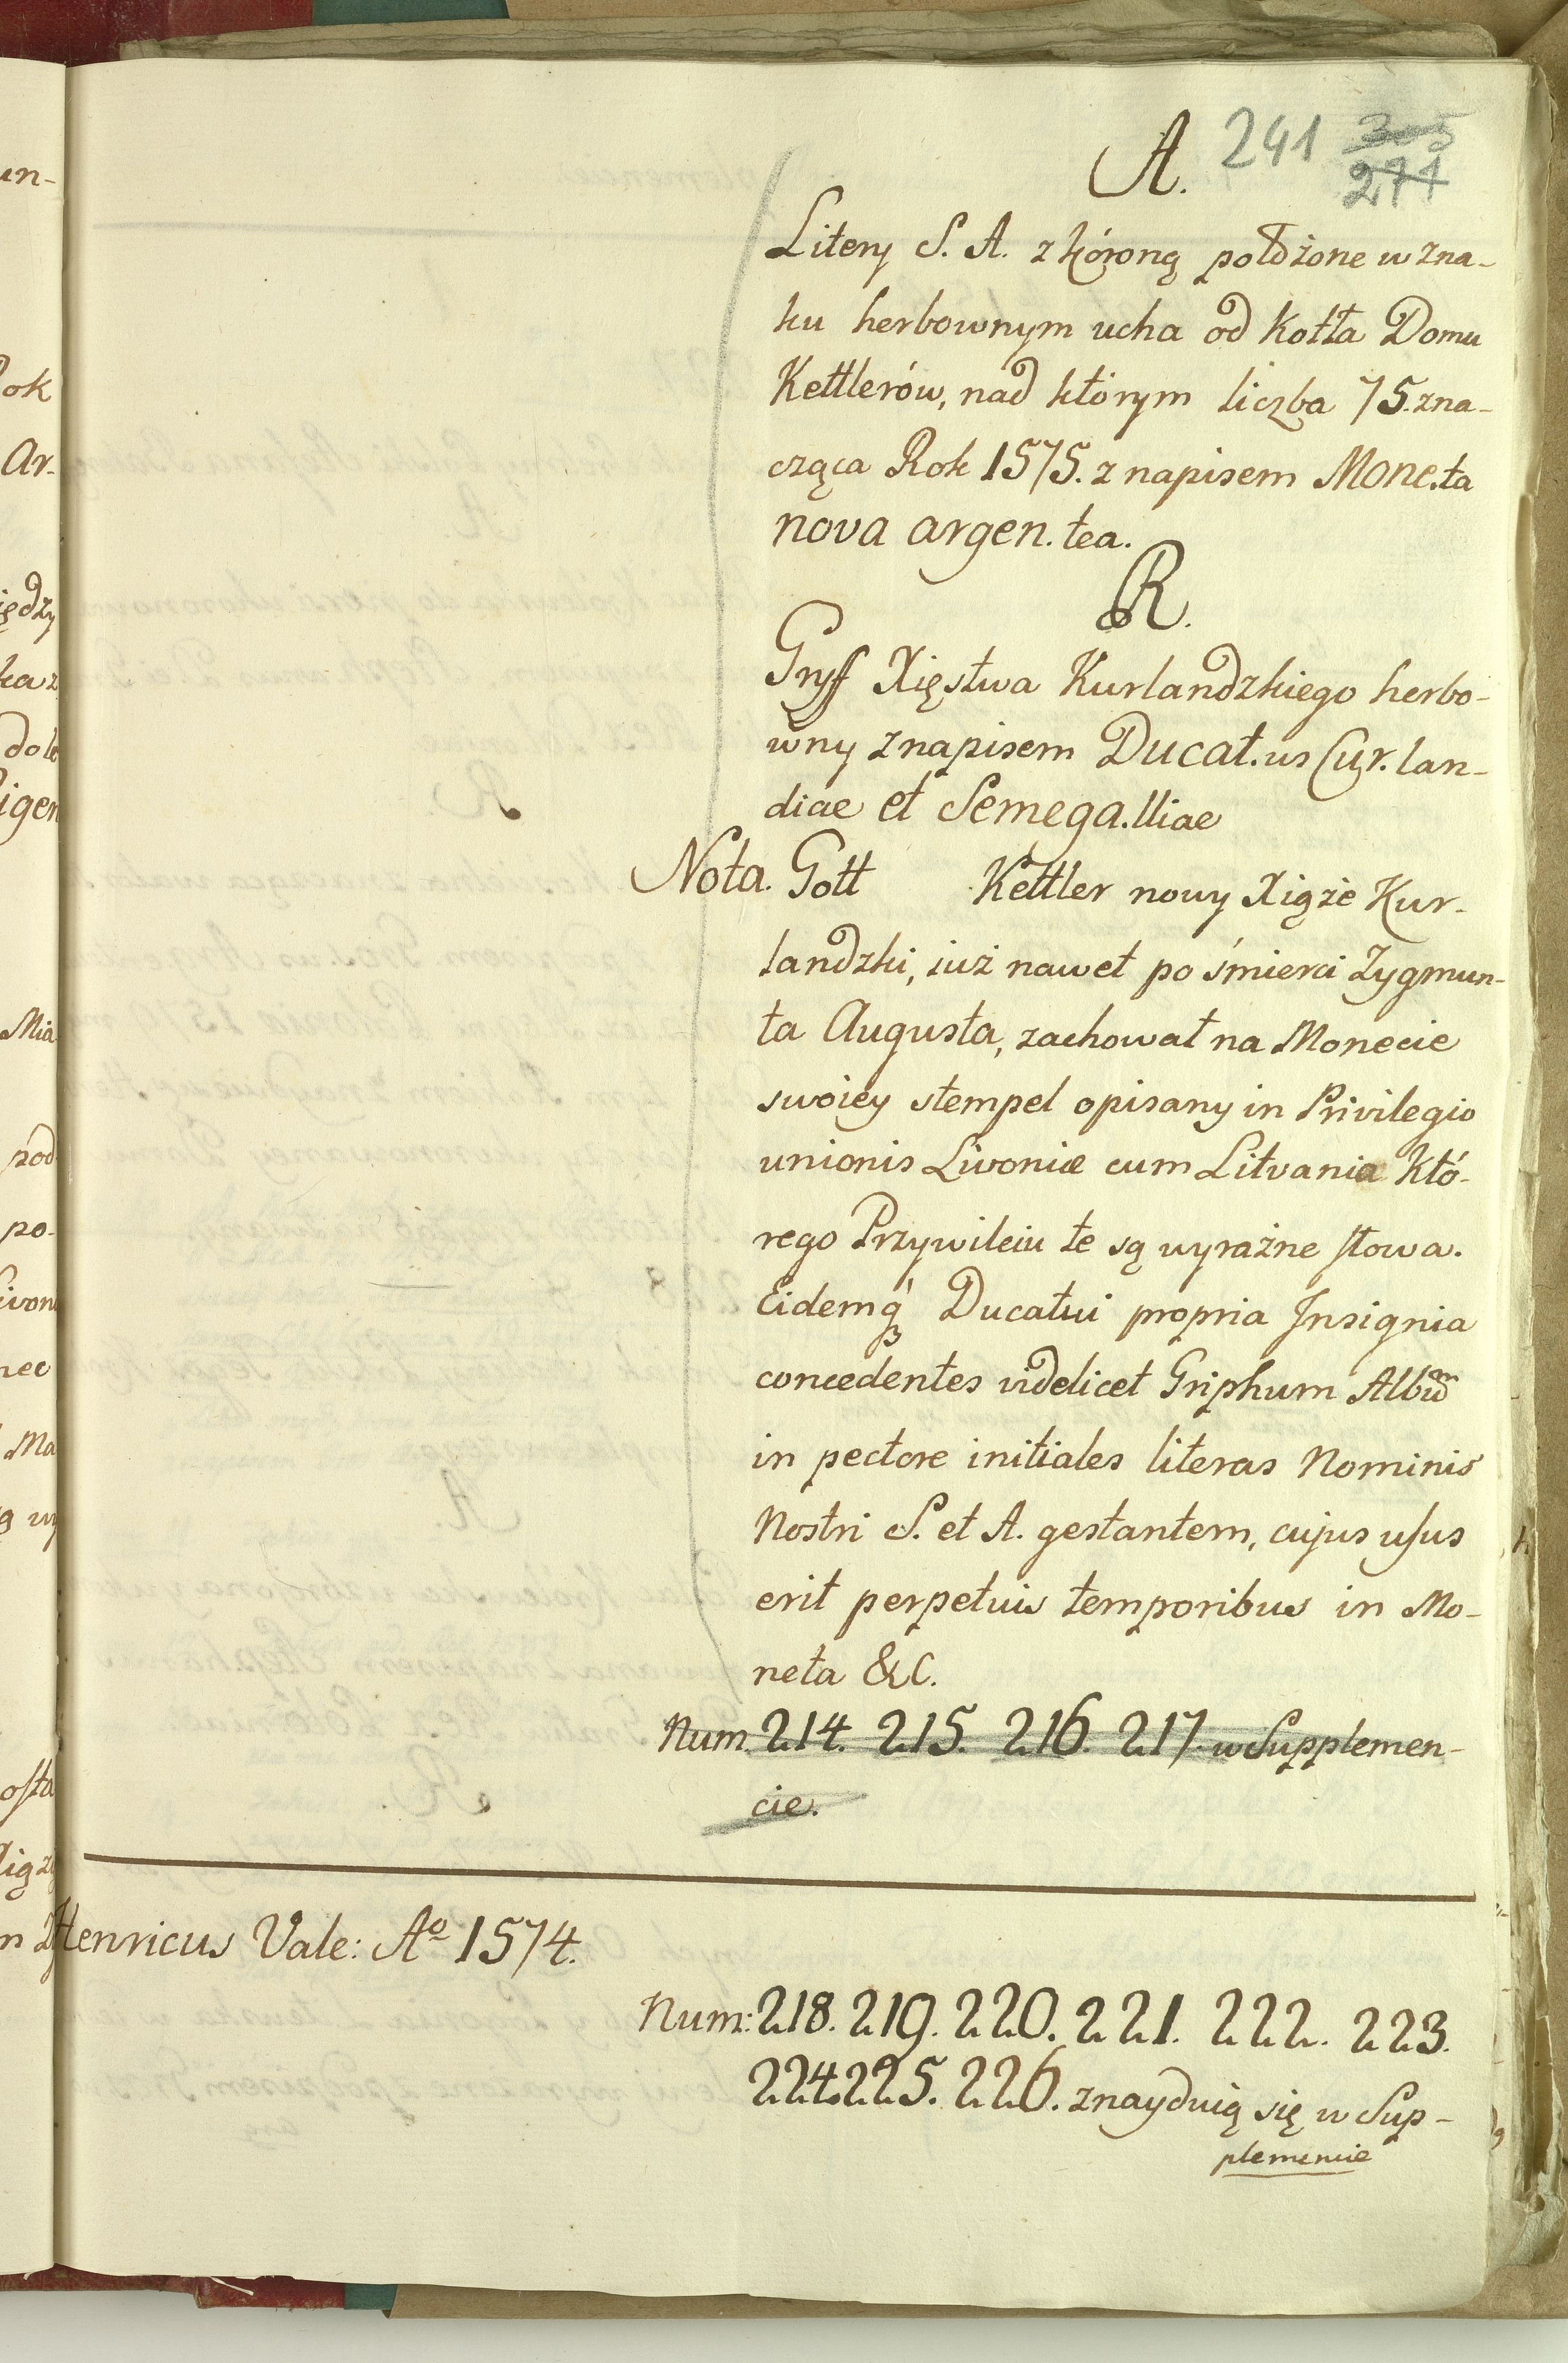 A. 241 305
271
Litery S. A. z kóroną położone w zna-
ku herbownym ucha od kotła Domu
Kettlerów, nad którym liczba 75. zna-
cząca Rok 1575. z napisem Mone.ta
nova argen.tea.
R.
Gryff Xięstwa Kurlandzkiego herbo-
wny z napisem Ducat.us Cur.lan-
diae et Semega.lliae
Nota. Gott Kettler nowy Xiąże Kur-
landzki, iuż nawet po śmierci Zygmun-
ta Augusta, zachował na Monecie
swoiey stempel opisany in Privilegio
unionis Livoniæ cum Litvania któ-
rego Przywileiu te są wyraźne słowa.
Eidemq3 Ducatui propria Insignia
concedentes videlicet Griphum Albūm
in pectore initiales literas Nominis
Nostri S. et A. gestantem, cujus usus
erit perpetuis temporibus in Mo-
neta &C.
Num. 214. 215. 216. 217. w Supplemen-
cie.
Henricus Vale: Aº 1574.
Num: 218. 219. 220. 221. 222. 223.
224. 225. 226. znayduią się w Sup-
plemencie
un-
Rok
Ar-
iędzy
Mia
pod
po-
nec
Ma